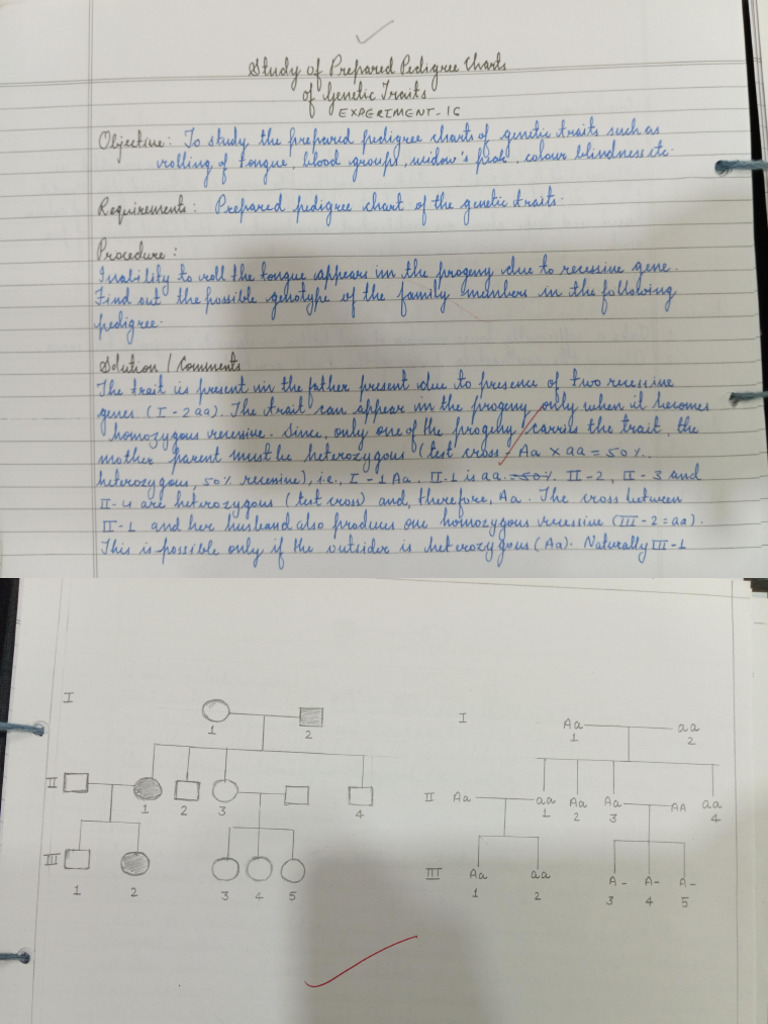 Study of Prepared Pedigree Charts
of Genetic Traits
EXPERIMENT-16
Objective: To study the prepared pedigree charts of genetic traits such as
rolling of tongue, blood groups, widow's peak, colour blindness etc.
Requirements: Prepared pedigree chart of the genetic traits.
Procedure:
Inability to roll the tongue appears in the progeny due to recessive gene.
Find out the possible genotype of the family members in the following
pedigree.
Solution / Comments
The trait is present in the father present due to presence of two recessive
genes (I-2aa). The trait can appear in the progeny only when it becomes
homozygous recessive. Since, only one of the progeny carries the trait, the
mother parent must be heterozygous (test cross, Aa x aa = 50%.
heterozygous, 50% recessive), i.e., I-1 Aa. II-1 is aa. 50%. II-2, II-3 and
II-4 are heterozygous (test cross) and, therefore, Aa. The cross between
II-1 and her husband also produces one homozygous recessive (III-2=aa).
This is possible only if the outsider is heterozygous (Aa). Naturally III-1
I
1 2
II
1 2 3 4
III
1 2 3 4 5
I Aa aa
1 2
II Aa aa Aa Aa AA aa
1 2 3 4
III Aa aa A- A- A-
1 2 3 4 5